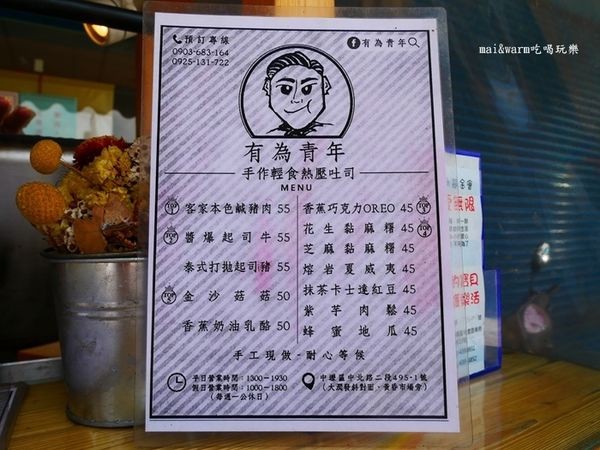 mai&warm吃喝玩樂
預訂專線
0903-683-164
0925-131-722
有為青年
有為青年
手作輕食熱壓吐司
MENU
TOP 1 客家本色鹹豬肉 55
TOP 3 醬爆起司牛 55
泰式打拋起司豬 55
金沙菇菇 50
香蕉奶油乳酪 50
香蕉巧克力OREO 45
花生黏麻糬 45 TOP 4
芝麻黏麻糬 45
熔岩夏威夷 45
抹茶卡士達紅豆 45
紫芋肉鬆 45
蜂蜜地瓜 45
手工現做-耐心等候
平日營業時間：1300-1930
假日營業時間：1000-1800
（每週一公休日）
中壢區中北路二段495-1號
（大潤發斜對面，黃昏市場旁）